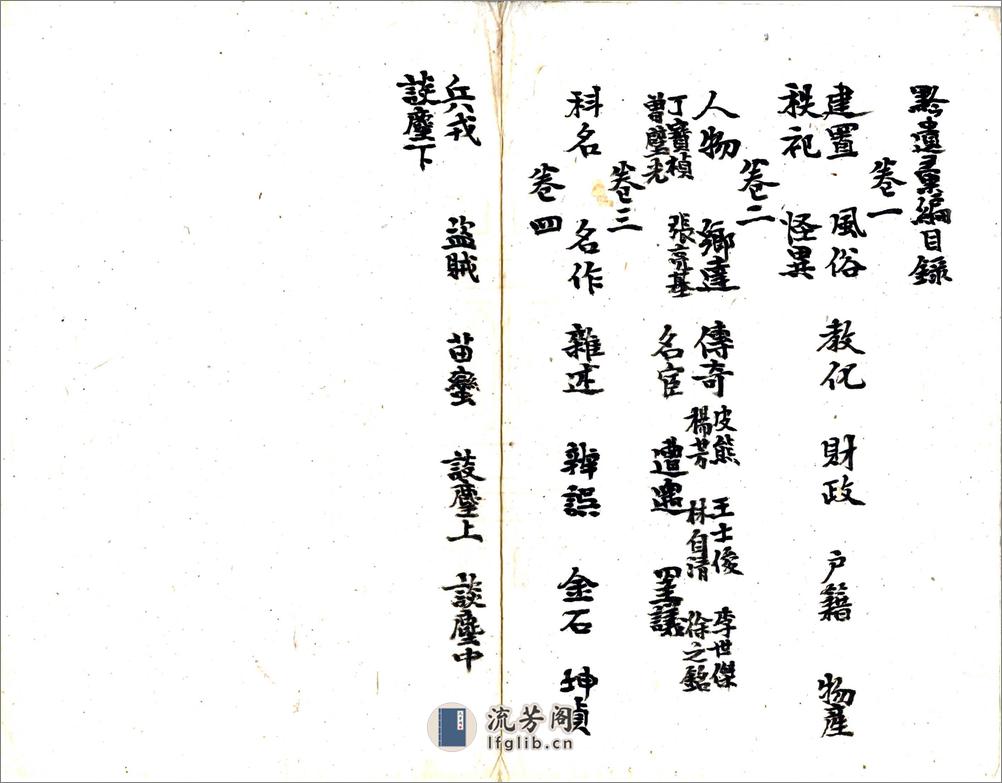 黔遺彙編目錄
卷一
建置 風俗 教化 財政 户籍 物產
秩祀 怪異
卷二
人物 鄉達 傳奇 皮熊 王士俊 李世傑
楊芳 林自清 徐之銘
丁寶楨 張亮基 名宦 遭遇 罣誤
曾璧光
卷三
科名 名作 雜述 辨誤 金石 坤貞
卷四
兵戎 盜賊 苗蠻 談麈上 談麈中
談麈下
流芳阁
lfglib.cn